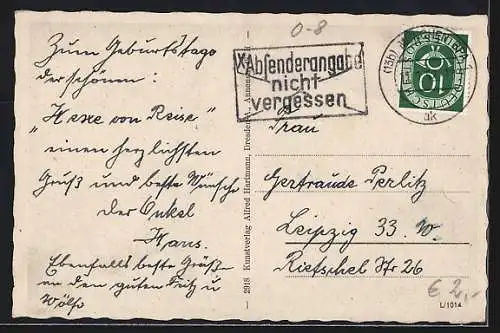 0-8
Zum Geburtstage
der schönen:
"Hexe von Reise"
einen herzlichsten
Gruß und beste Wünsche
der Onkel
Hans.
Ebenfalls beste Grüße
an den guten Fritz u
Wölfe
2918 Kunstverlag Alfred Hartmann, Dresden-A., Annenstraße
Absenderangabe
nicht
vergessen
10
DEUTSCHE BUNDESPOST
ak
Frau
Gertraude Perlitz
Leipzig 33. W.
Rietschel Str 26
€ 2,-
L/1014